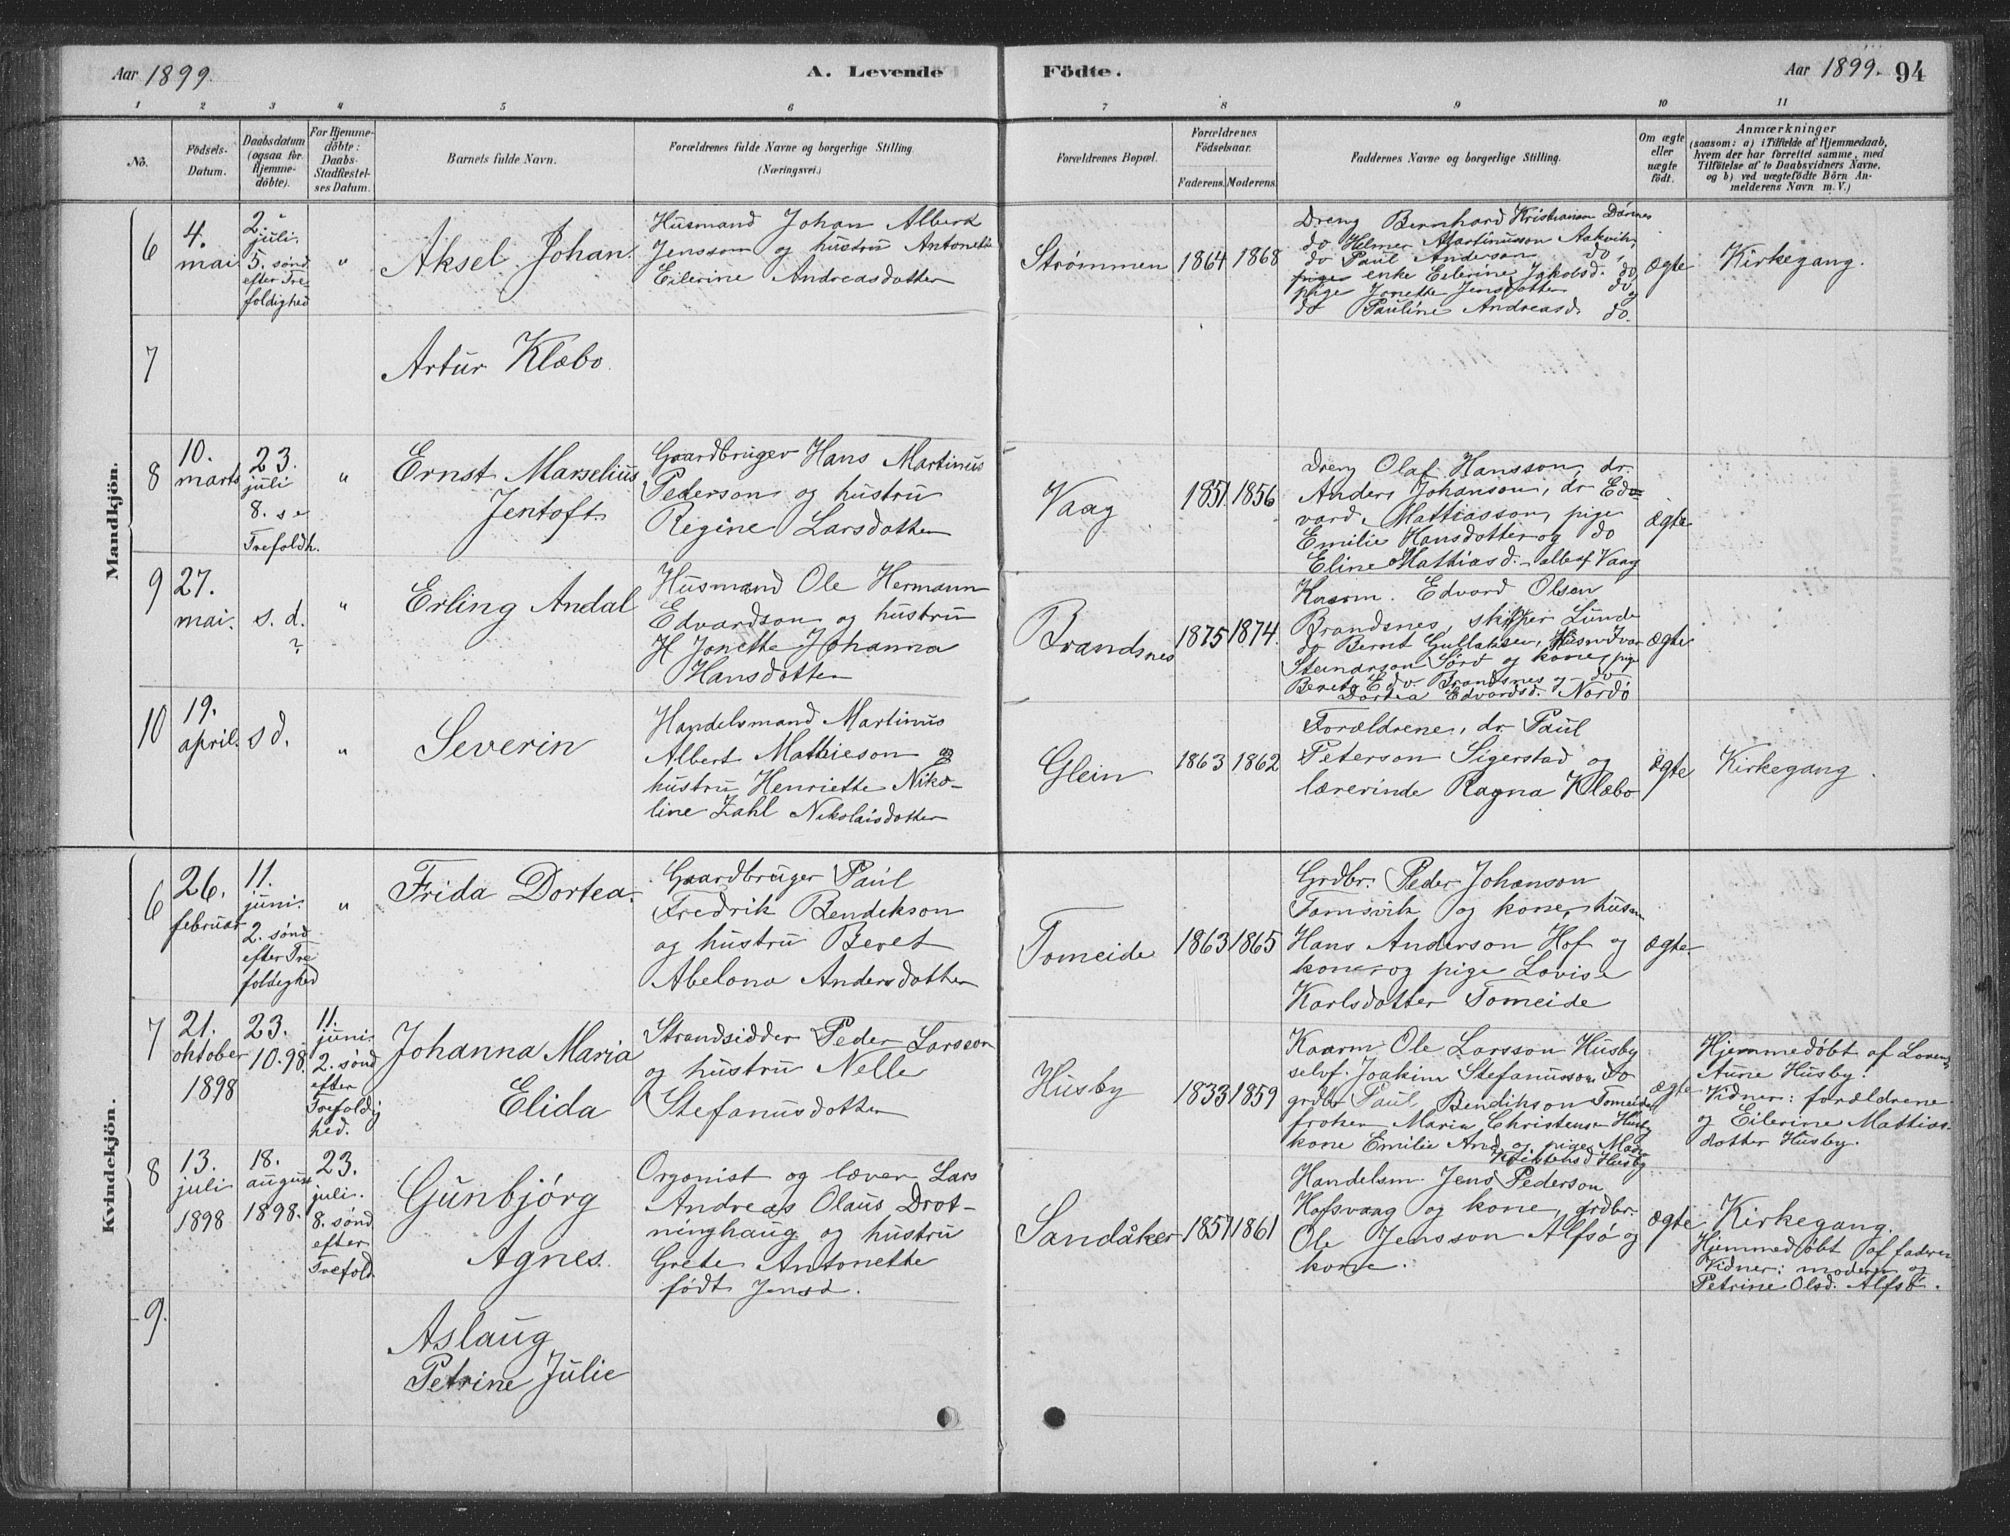 Aar 1899.
A. Levende
Födte.
Aar 1899.
94
1 2 3 4 5 6 7 8 9 10 11
No.
Födsels-
Datum.
Daabsdatum
(ogsaa for
Hjemme-
döbte).
For Hjemme-
döbte:
Daabs-
Stadfæstel-
ses Datum.
Barnets fulde Navn.
Forældrenes fulde Navne og borgerlige Stilling
(Næringsvei.)
Forældrenes Bopæl.
Forældrenes
Födselsaar.
Faderens. Moderens.
Faddernes Navne og borgerlige Stilling.
Om ægte
eller
uægte
födt.
Anmærkninger
(saasom: a) i Tilfælde af Hjemmedaab,
hvem der har forrettet samme, med
Tilföielse af to Daabsvidners Navne.
og b) ved uægtefödte Börn An-
melderens Navn m. V.)
Mandkjön.
6
4.
mai
2.
juli.
5. sønd
efter Tre
foldighed
"
Aksel Johan.
Husmand Johan Albert
Jensson og hustru Antonette
Eilerine Andreasdotter
Strømmen
1864
1868
Dreng Bernhard Kristianson
do Helmer Martinusson Aakvik,
do Paul Anderson do,
enke Eilerine Jakobsd. do
pige Jonette Jensdotter do og
do Pauline Andreasd. do.
ægte
Kirkegang.
7
Artur Klæbo.
8
10.
marts
23.
juli
8. s e
Trefoldh.
"
Ernst Marselius
Jentoft.
Gaardbruger Hans Martinus
Pederson og hustru
Regine Larsdotter
Vaag
1851.
1856
Dreng Olaf Hansson, dr.
Anders Johanson, dr Ed-
vard Mattiasson, pige
Emilie Hansdotter og do
Eline Mathiasd. alle af Vaag
ægte
9
27.
mai.
s. d.
?
"
Erling Andal
Husmand Ole Hermann
Edvardson og hustru
H Jonette Johanna
Hansdotter
Brandsnes
1875
1874.
Kaarm. Edvard Olsen
Brandsnes, skipper Lunde
do Bernt Gullaksen, Husm Ivar
Steinarson Sörv og kone, pige
Bereta Edv. Brandsnes og do
Dortea Edvardsd. Nordö
ægte
10
19.
april.
s d.
"
Severin
Handelsmand Martinus
Albert Mathieson og
hustru Henriette Niko-
line Zahl Nikolaisdotter
Glein
1863
1862
Forældrene, dr Paul
Peterson Sigerstad og
lærerinde Ragna Klæbo
ægte
Kirkegang.
Kvindekjön.
6
26.
februar
11.
juni.
2. sønd
efter Tre
foldighed
"
Frida Dortea.
Gaardbruger Paul
Fredrik Bendikson
og hustru Beret
Abelona Andersdotter
Tomeide
1863
1865
Grdbr. Peder Johanson
Tomsvik og kone, husm
Hans Anderson Hof og
kone og pige Lovise
Karlsdotter Tomeide
ægte.
7
21.
oktober
1898
23.
10.98.
11.
juni.
2. sønd
efter
Trefoldig
hed.
Johanna Maria
Elida
Strandsidder Peder Larsson
og hustru Nelle
Stefanusdotter
Husby
1833
1859
Kaarm Ole Larsson Husby
selvf. Joakim Stefanusson do
grdbr Paul Bendikson Tomeide
frøken Maria Christensen Husby
kone Emilie And. og pige
Kristensd Husby
ægte
Hjemmedøbt af Lorens
Aune Husby.
Vidner: forældrene
og Eilerine Mattias-
dotter Husby.
8
13.
juli
1898
18.
august
1898.
23.
juli.
8. sønd
efter
Trefold.
Gunbjörg
Agnes.
Organist og lærer Lars
Andreas Olaus Drot-
ninghaug og hustru
Grete Antonette
født Jensd.
Sandåker
1857
1861
Handelsm Jens Pederson
Hofsvaag og kone, grdbr.
Ole Jensson Alfsø og
kone.
ægte
Kirkegang.
Hjemmedøbt af faderen
Vidner: moderen og
Petrine Olsd. Alfsø.
9.
Aslaug
Petrine Julie